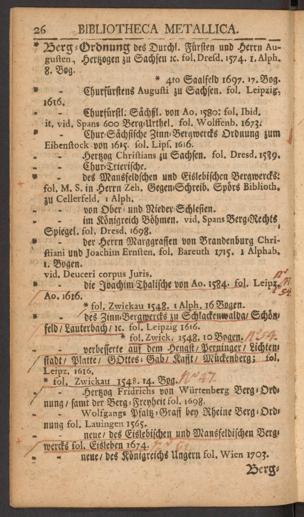 26 BIBLIOTHECA METALLICA.
* Berg-Ordnung des Durchl. Fürsten und Herrn Au-
gusten, Hertzogen zu Sachsen ꝛc. fol. Dresd. 1574. 1. Alph.
8. Bog.
* 4to Saalfeld 1697. 17. Bog.
- - Churfürstens Augusti zu Sachsen. fol. Leipzig,
1616.
- - Churfürstl. Sächsl. von Ao. 1580: fol. Ibid.
it. vid. Spans 600 Berg-Urthel. fol. Wolffenb. 1673.
- - Chur-Sächsische Zinn-Bergwercks Ordnung zum
Eibenstock von 1615. fol. Lips. 1616.
- - Hertzog Christians zu Sachsen. fol. Dresd. 1589.
- - Chur-Trierische.
- - des Mansfeldschen und Eislebischen Bergwercks:
fol. M. S. in Herrn Zeh. Gegen-Schreib. Spörs Biblioth.
zu Cellerfeld, 1 Alph.
- - von Ober- und Nieder-Schlesien.
- - im Königreich Böhmen. vid, Spans Berg-Rechts
Spiegel. fol. Dresd. 1698.
- - der Herrn Marggrafen von Brandenburg Chri-
stiani und Joachim Ernsten, fol. Bareuth 1715. 1 Alphab.
1. Bogen.
vid. Deuceri corpus Juris.
- - die Joachim Thalische von Ao. 1584. fol. Leipz.
Ao. 1616.
* fol. Zwickau 1548. 1 Alph. 16 Bogen.
- - des Zinn-Bergwercks zu Schlackenwalda/ Schön-
feld/ Lauterbach/ ꝛc. fol. Leipzig 1616.
* fol. Zwick. 1548. 10 Bogen.
- - verbesserte auf dem Hengst/ Perninger/ Lichten-
stadt/ Platte/ GOttes-Gab/ Kafft/ Mückenberg; fol.
Leipz. 1616.
* fol. Zwickau 1548. 14. Bog. N° 47.
- - Hertzog Fridrichs von Würtenberg Berg-Ord-
nung/ samt der Berg-Freyheit fol. 1698.
- - Wolfgangs Pfaltz-Graff bey Rheine Berg-Ord-
nung fol. Lauingen 1565.
- - neue/ des Eislebischen und Mansfeldischen Berg-
wercks fol. Eisleben 1674.
- - neue/ des Königreichs Ungern fol. Wien 1703.
Berg-